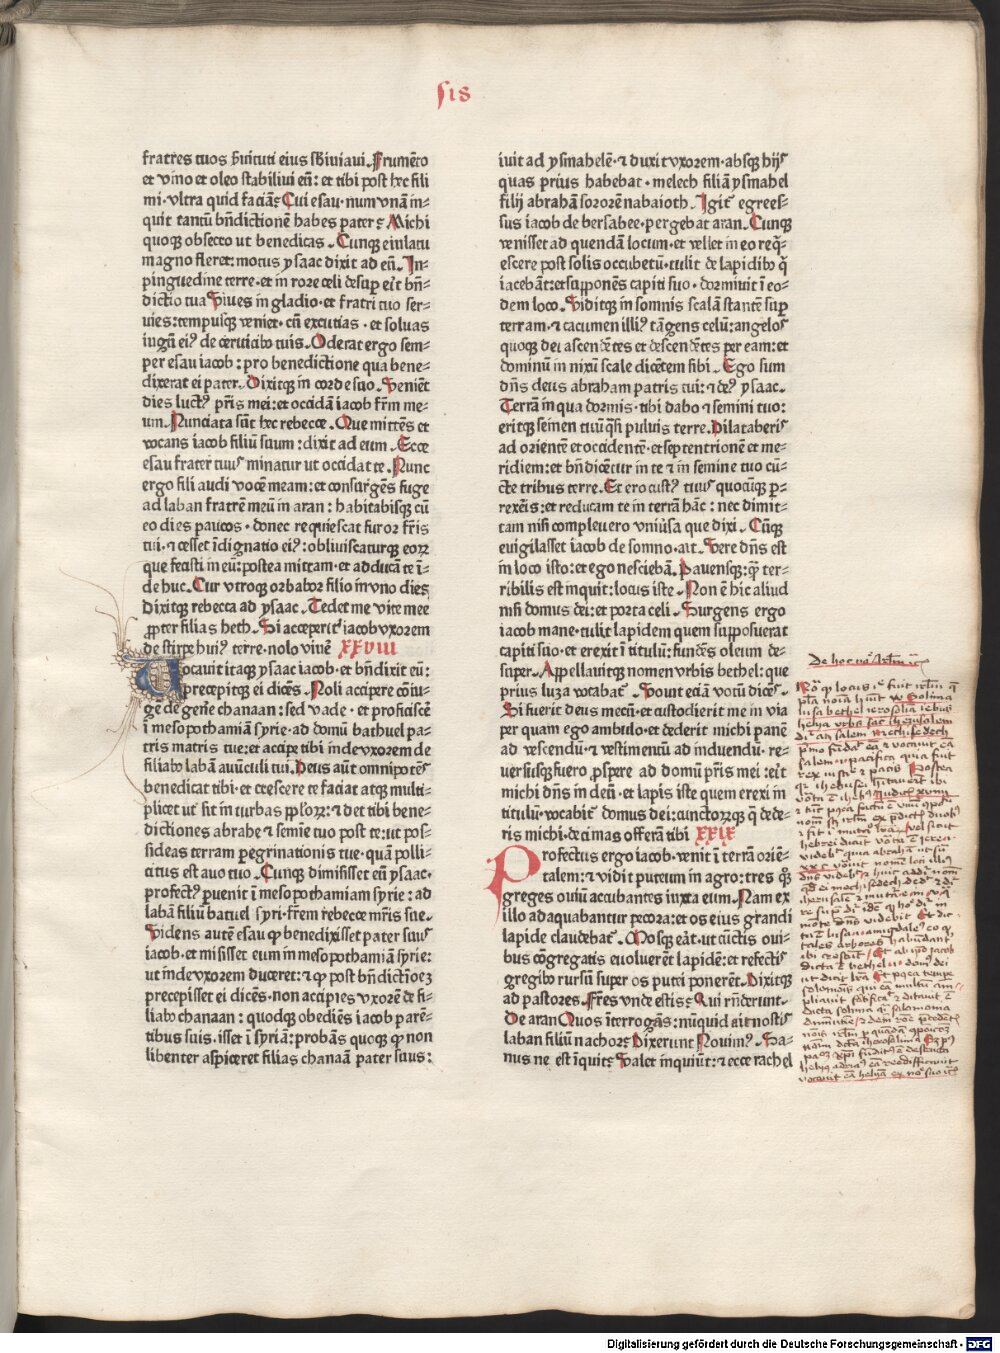 sis
fratres tuos ẜuituti eius ſbiugaui. Frumēto
et vino et oleo stabiliui eū: et tibi post hec fili
mi· vltra quid faciā? Cui esau· num vnā in=
quit tantū bn̄dictionē habes pater? Michi
quoqꝫ obsecro ut benedicas. Cunqꝫ eiulatu
magno fleret: motus ysaac dixit ad eū. In
pinguedine terre· et in rore celi desuꝑ eīt bn̄=
dictio tua Viues in gladio· et fratri tuo ser=
uies: tempusqꝫ veniet· cū excutias · et soluas
iugū eiꝰ de ceruicibꝰ tuis. Oderat ergo sem=
per esau iacob: pro benedictione qua bene=
dixerat ei pater. Dixitqꝫ in corde suo. Veniēt
dies luctꝰ pr̄is mei: et occidā iacob fr̄m me=
um. Nunciata sūt hec rebecce. Que mittēs et
vocans iacob filiū suum: dixit ad eum. Ecce
esau frater tuus minatur ut occidat te. Nunc
ergo fili audi vocē meam: et consurgēs fuge
ad laban fratrē meū in aran: habitabisqꝫ cū
eo dies paucos · donec requiescat furor fr̄is
tui· ⁊ cesset īdignatio eiꝰ: obliuiscaturqꝫ eoꝝ
que fecisti in eū: postea mittam· et adducā te ī=
de huc. Cur vtroqꝫ orbabor filio in vno die?
Dixitqꝫ rebecca ad ysaac. Tedet me vite mee
ꝓpter filias heth. Si acceperit iacob vxorem
de stirpe huiꝰ terre· nolo viuē XXVIII
Vocauit itaqꝫ ysaac iacob· et bn̄dixit eū:
precepitqꝫ ei dicēs. Noli accipere cōiu=
gē de gen̄e chanaan: sed vade· et proficiscē
ī mesopothamiā syrie· ad domū bathuel pa=
tris matris tue: et accipe tibi inde vxorem de
filiabꝰ labā auūculi tui. Deus aūt omnipotēs
benedicat tibi· et crescere te faciat atqꝫ multi=
plicet ut sit in turbas ppl̄oꝝ: ⁊ det tibi bene=
dictiones abrahe ⁊ semīe tuo post te: ut pos=
sideas terram peregrinationis tue· quā polli=
citus est auo tuo. Cunqꝫ dimisisset eū ysaac·
profectꝰ peruenit ī mesopothamiam syrie: ad
labā filiū batuel syri· fr̄em rebecce mr̄is sue.
Videns autē esau ꝙ benedixisset pater suus
iacob· et misisset eum in mesopothamiā syrie:
ut inde vxorem duceret: ⁊ ꝙ post bn̄dictōeꝫ
precepisset ei dicēs· non accipies vxorē de fi=
liabꝰ chanaan: quodqꝫ obediēs iacob parē=
tibus suis· isset ī syriā: probās quoqꝫ ꝙ non
libenter aspiceret filias chanaā pater suus:
iuit ad ysmahelē· ⁊ duxit vxorem· absqꝫ hijs
quas prius habebat· melech filiā ysmahel
filij abrahā sororē nabaioth. Igit̉ egres=
sus iacob de bersabee· pergebat aran. Cunqꝫ
venisset ad quendā locum· et vellet in eo req̄=
escere post solis occubetū· tulit de lapidibꝰ q̄
iacebāt: et supponēs capiti suo· dormiuit ī eo=
dem loco. Viditqꝫ in somnis scalā stantē suꝑ
terram· ⁊ cacumen illiꝰ tāgens celū: angelos
quoqꝫ dei ascendētes et descendētes per eam: et
dominū innixū scale dicētem sibi. Ego sum
dn̄s deus abraham patris tui: ⁊ deꝰ ysaac.
Terrā in qua dormis· tibi dabo ⁊ semini tuo:
eritqꝫ semen tuū q̄si puluis terre. Dilataberis
ad orientē et occidentē· et septentrionē et me=
ridiem: et bn̄dicētur in te ⁊ in semine tuo cū=
cte tribus terre. Et ero custꝰ tuus quocūqꝫ ꝑ=
rexeris: et reducam te in terrā hāc: nec dimit=
tam nisi compleuero vniūsa que dixi. Cūqꝫ
euigilasset iacob de somno· ait. Vere dn̄s est
in loco isto: et ego nesciebā. Pauensqꝫ: q̄ꝫ ter=
ribilis est inquit: locus iste. Non ē hic aliud
nisi domus dei: et porta celi. Surgens ergo
iacob mane· tulit lapidem quem supposuerat
capiti suo· et erexit ī titulū: fundēs oleum de=
super. Appellauitqꝫ nomen vrbis bethel: que
prius luza vocabat̉. Vouit eciā votū dicēs.
Si fuerit deus mecū· et custodierit me in via
per quam ego ambulo· et dederit michi panē
ad vescendū· ⁊ vestimentū ad induendū· re=
uersusqꝫ fuero ꝓspere ad domū pr̄is mei: eīt
michi dn̄s in deū· et lapis iste quem erexi in
titulū· vocabit̉ domus dei: cunctoꝝqꝫ q̄ dede=
ris michi· decimas offerā tibi XXIX
Profectus ergo iacob· venit ī terrā oriē=
talem: ⁊ vidit puteum in agro: tres qꝫ
greges ouiū accubantes iuxta eum. Nam ex
illo adaquabantur pecora: et os eius grandi
lapide claudebat̉. Mosqꝫ eāt· ut cūctis oui=
bus cōgregatis euoluerēt lapidē: et refectis
gregibꝰ rursū super os putei ponerēt. Dixitqꝫ
ad pastores. Fr̄es vnde estis? Qui rn̄derunt·
De aran Quos īterrogās: nūquid ait nostis
laban filiū nachor? Dixerunt Nouimꝰ. Sa=
nus ne est inquit? Valet inquiūt: ⁊ ecce rachel
Digitalisierung gefördert durch die Deutsche Forschungsgemeinschaft - DFG